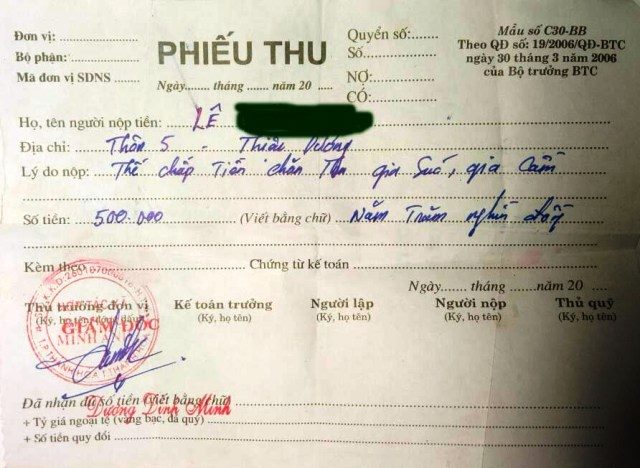 Đơn vị:
Bộ phận:
Mã đơn vị SDNS
PHIẾU THU
Ngày tháng năm 20
Quyển số:
Số
NỢ:
CÓ:
Mẫu số C30-BB
Theo QĐ số: 19/2006/QĐ-BTC
ngày 30 tháng 3 năm 2006
của Bộ trưởng BTC
Họ, tên người nộp tiền: LÊ
Địa chỉ: Thôn 5 - Thiệu Dương
Lý do nộp: Thế chấp Tiền chăn Thả gia Súc, gia Cầm
Số tiền: 500.000 (Viết bằng chữ) Năm Trăm nghìn đồng
Kèm theo Chứng từ kế toán
Ngày tháng năm 20
Thủ trưởng đơn vị Kế toán trưởng Người lập Người nộp Thủ quỹ
(Ký, họ tên, đóng dấu) (Ký, họ tên) (Ký, họ tên) (Ký, họ tên) (Ký, họ tên)
GIÁM ĐỐC
MINH ANH
Dương Đình Minh
Đã nhận đủ số tiền Viết bằng chữ
+ Tỷ giá ngoại tệ (vàng bạc, đá quý)
+ Số tiền quy đổi